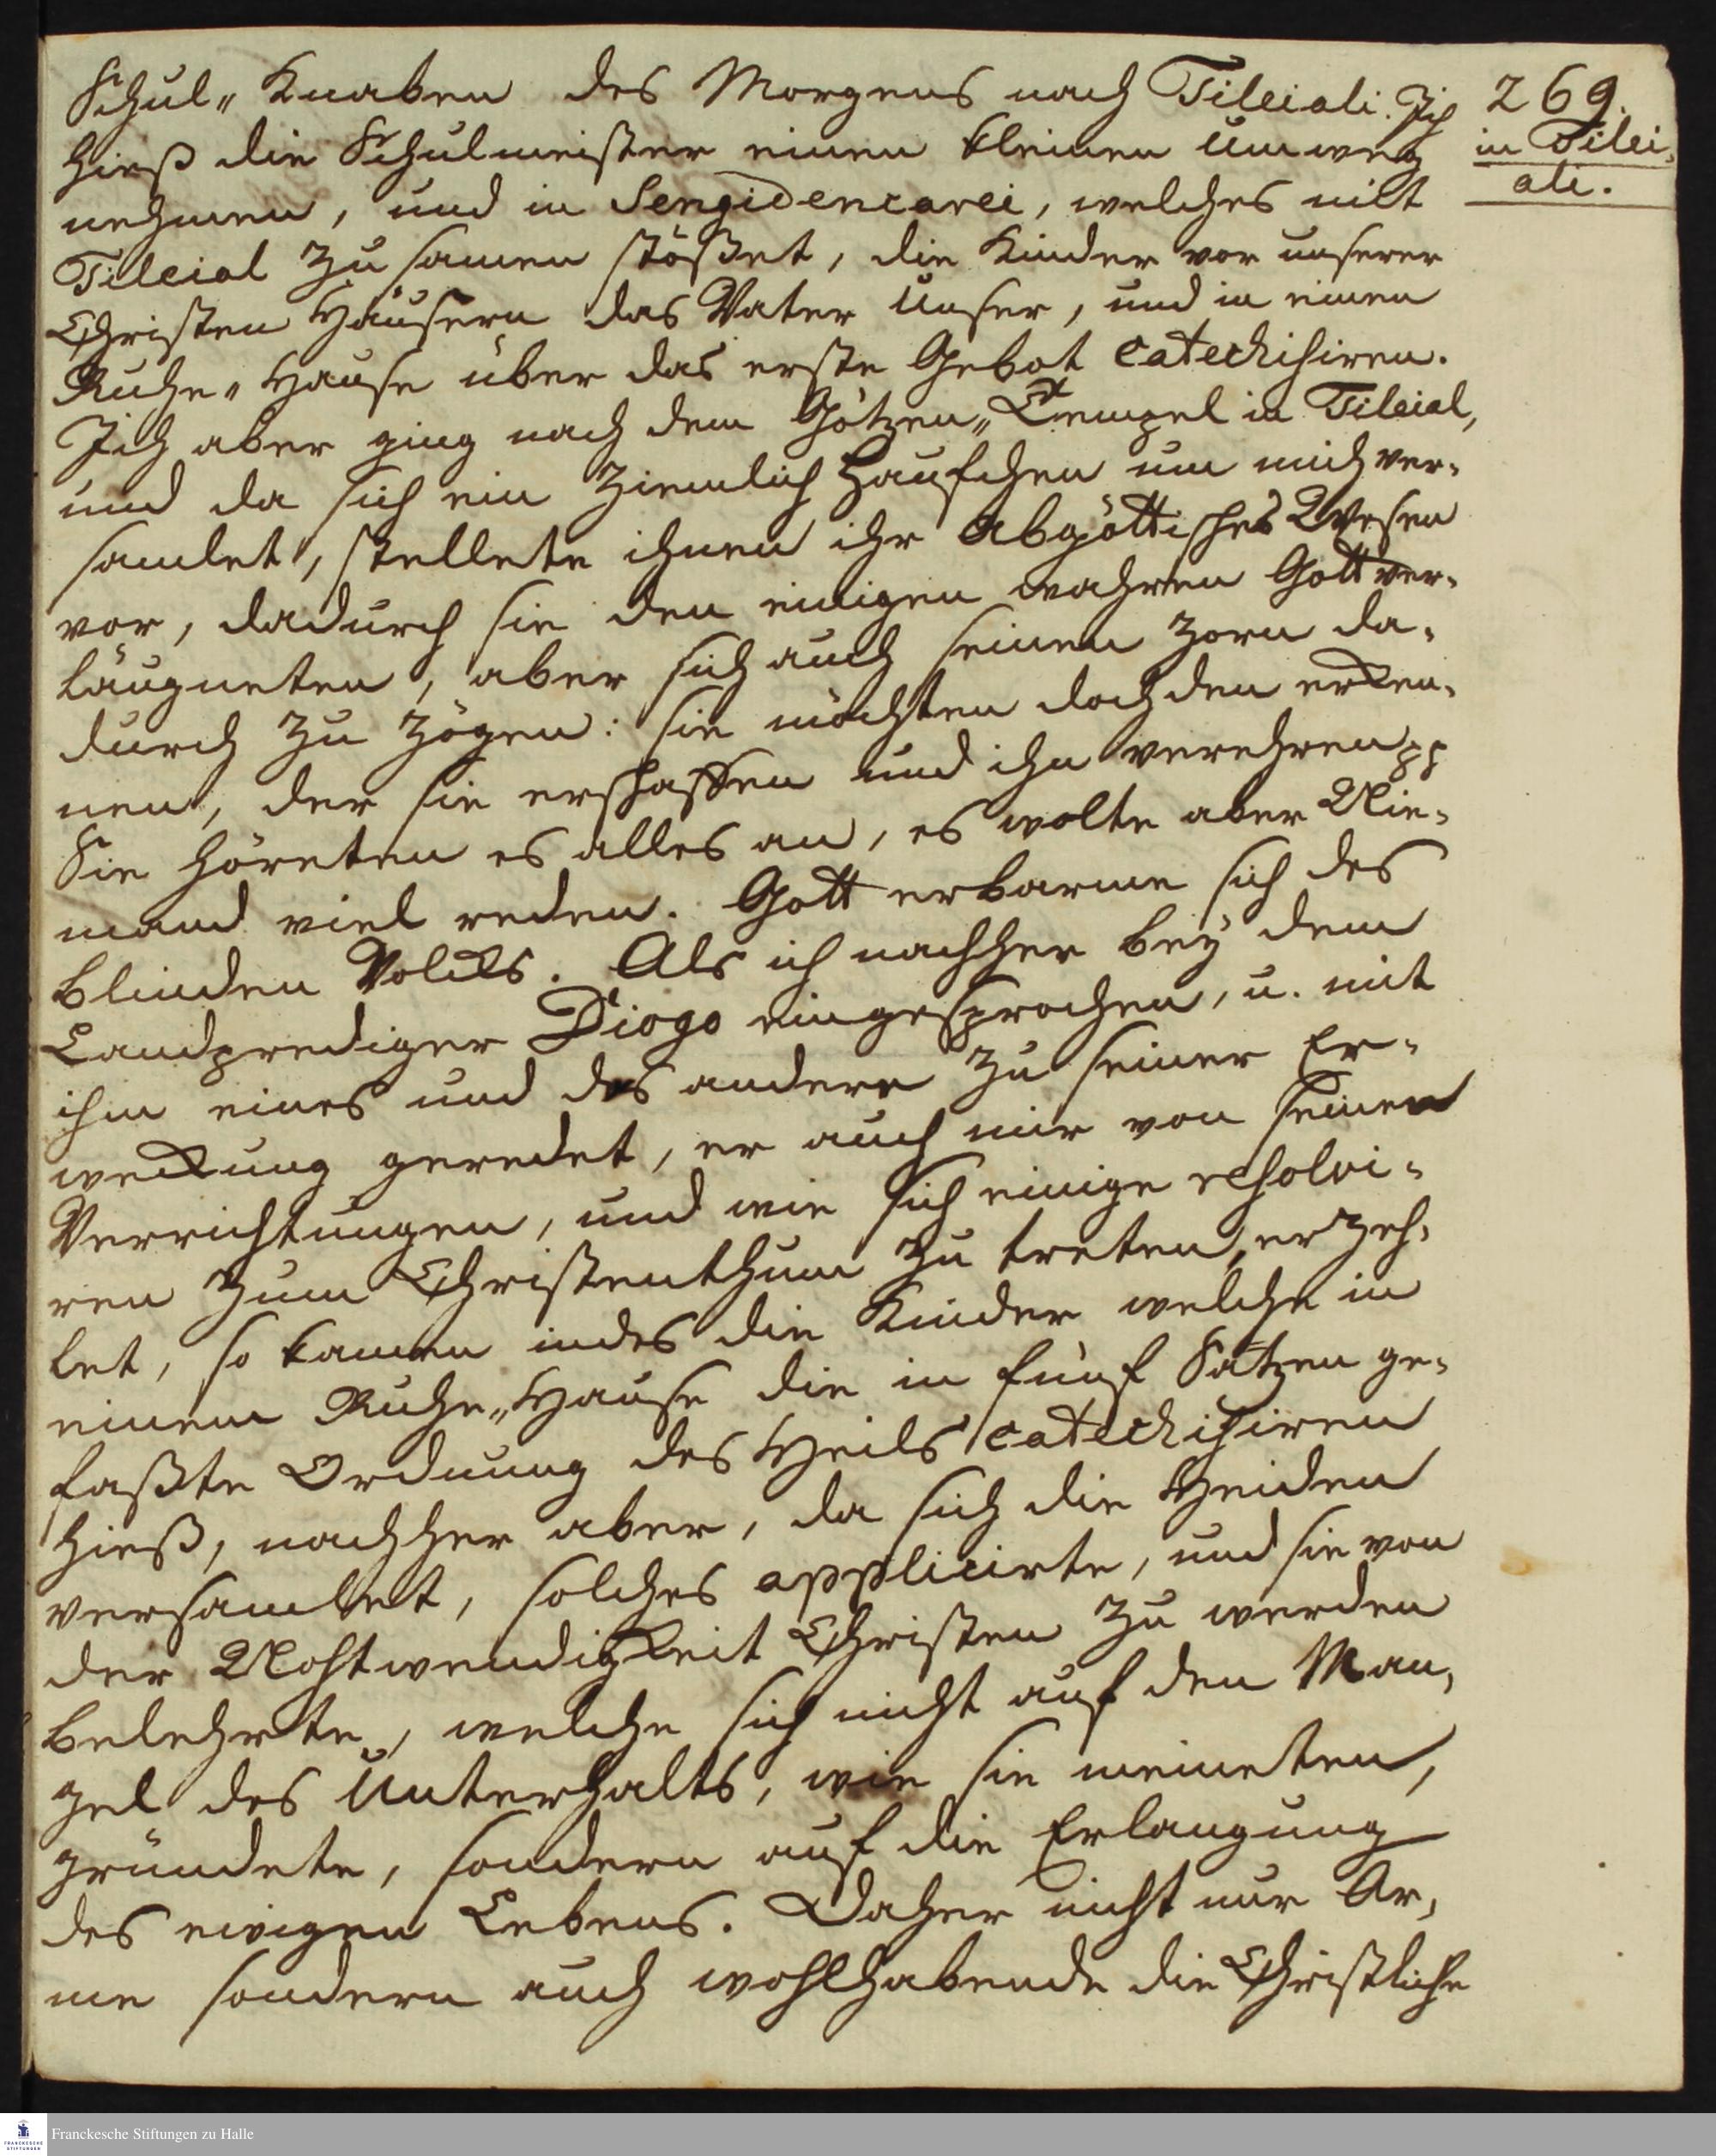 269.
in Tilei¬
ali.
Schul„ Knaben des Morgens nach Tileiali. Ich
hieß die Schulmeister einen kleinen Umweg
nehmen, und in Sengidencarei, welches mit
Tileial zu samen stößet, die Kinder vor unserer
Christen Häusern das Vater Unser, und in einem
Ruhe„ Hause über das erste Gebot catechisiren.
Ich aber ging nach dem Götzen„ Tempel in Tileial,
und da sich ein ziemlich Häufchen um mich ver¬
samlet, stellete ihnen ihr Abgöttisches Wesen
vor, dadurch sie den einigen wahren Gott ver¬
läugneten, aber sich auch seinen Zorn da¬
durch zu zögen: sie möchten doch den erken¬
nen, der sie erschaffen und ihn verehren pp
Sie höreten es alles an, es wolte aber Nie¬
mand viel reden. Gott erbarme sich des
blinden Volcks. Als ich nachher bey dem
Landprediger Diogo eingesprochen, u. mit
ihm eines und das andere zu seiner Er¬
weckung geredet, er auch mir von seinen
Verrichtungen, und wie sich einige resolvi¬
ren zum Christenthum zu treten, erzeh¬
let, so kamen indes die Kinder welche in
einem Ruhe„ Hause die in fünf Sätzen ge¬
faßte Ordnung des Heils catechisiren
hieß, nachher aber, da sich die Heiden
versamlet, solches applicirte, und sie von
der Nohtwendigkeit Christen zu werden
belehrte, welche sich nicht auf den Man¬
gel des Unterhalts, wie sie meineten,
gründete, sondern auf die Erlangung
des ewigen Lebens. Daher nicht nur Ar¬
me sondern auch wohlhabende die Christliche
Franckesche Stiftungen zu Halle